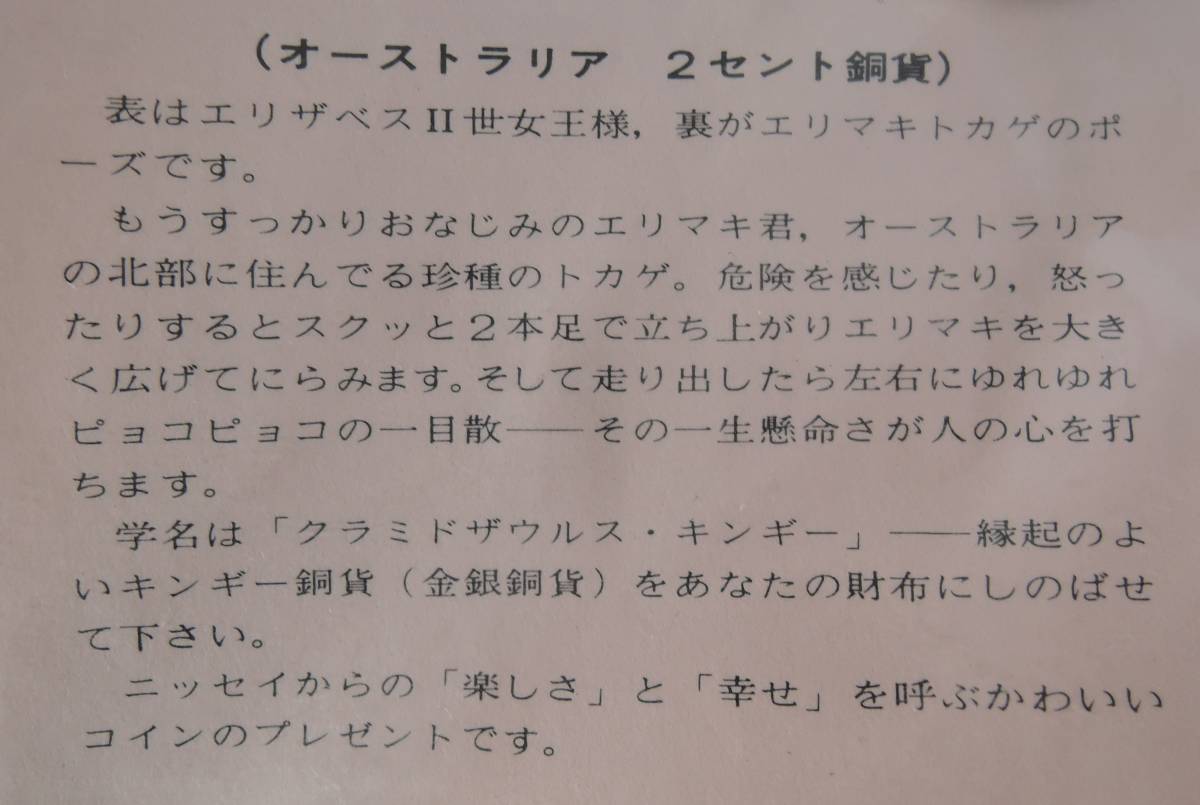 (オーストラリア　２セント銅貨)
表はエリザベスII世女王様，裏がエリマキトカゲのポ
ーズです。
もうすっかりおなじみのエリマキ君，オーストラリア
の北部に住んでる珍種のトカゲ。危険を感じたり，怒っ
たりするとスクッと２本足で立ち上がりエリマキを大き
く広げてにらみます。そして走り出したら左右にゆれゆれ
ピョコピョコの一目散――その一生懸命さが人の心を打
ちます。
学名は「クラミドザウルス・キンギー」――縁起のよ
いキンギー銅貨（金銀銅貨）をあなたの財布にしのばせ
て下さい。
ニッセイからの「楽しさ」と「幸せ」を呼ぶかわいい
コインのプレゼントです。